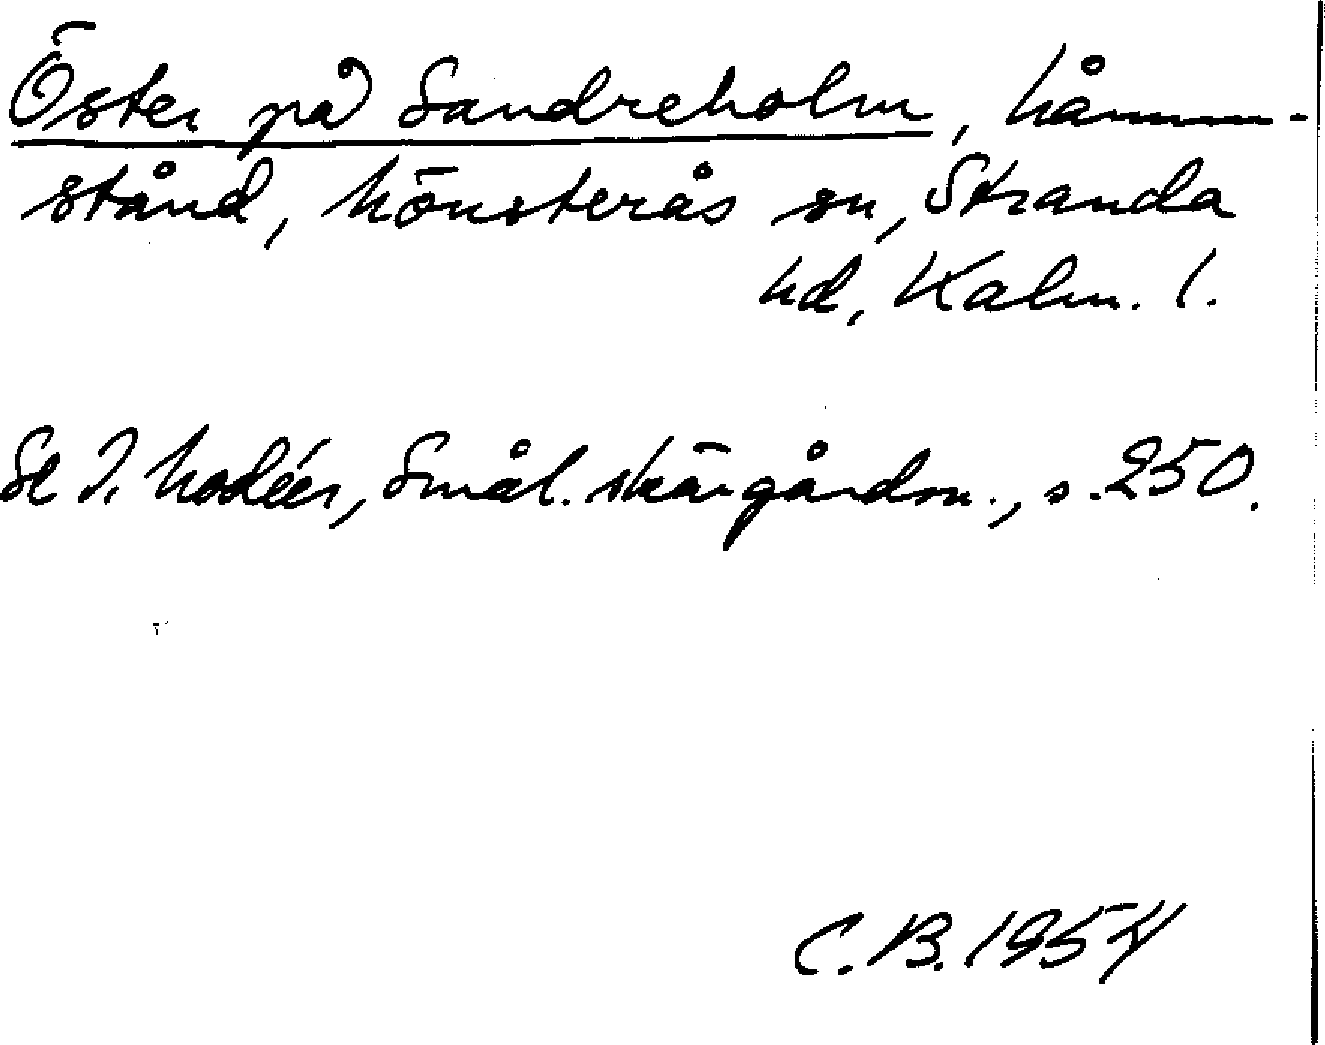 Öster på Sandreholm, hamm-
stånd, Mönsterås sn, Stranda
hd, Kalm. l.
Se I. Modéer, Smål. skärgårdsn., s. 250.
C. B. 1954